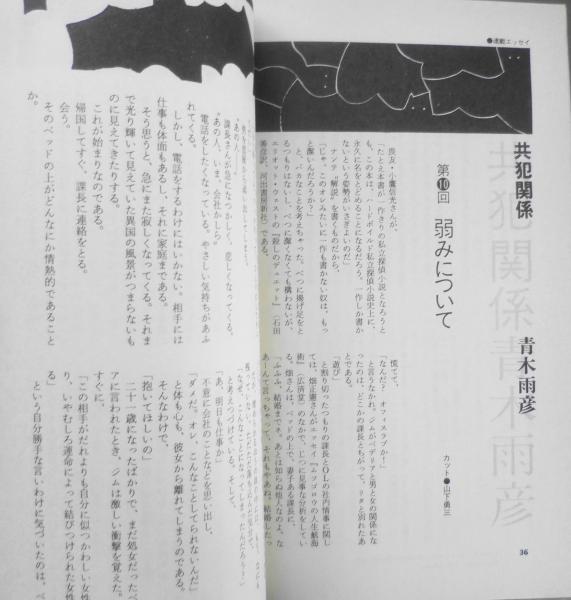 ●連載エッセイ
共犯関係
共犯関係青木雨彦
青木雨彦
第⑩回　弱みについて
カット●山下勇三
良友・小鷹信光さんが、
「たとえ本書が一作きりの私立探偵小説となろうと
も、この本は、ハードボイルド私立探偵小説史上に、
永久に名をとどめることになるだろう。一作しか書か
ないという姿勢がいさぎよいのだ」
ナンテ〝解説〟を書くものだから、
「じゃ、このオレみたいに一作も書かない奴は、もっ
と潔いんだろうか？」
と、バカなことを考えちゃった。べつに揚げ足をと
るつもりはないし、べつに潔くなくても構わないが、
エリオット・ウェストの『殺しのデュエット』（石田
善彦訳、河出書房新社）である。
慌てて、
「なんだ？　オフィスラブか！」
と言うなかれ。ジムがベデリアと男と女の関係にな
ったのは、どこかの課長とちがって、リタと別れたあ
とである。
「遊び」
と割り切ったつもりの課長とＯＬの社内情事に関し
ては、畑正憲さんがエッセイ『ムツゴロウの人生航海
術』（広済堂）のなかで、じつに見事な分析をしてい
る。畑さんは、ベッドの上で、妻子ある課長に、
「ふふふ。結婚までネ。あとは知らぬ他人なのよ、な
あーんて言っちゃって、それもやあね。結婚したっ
36
課長さんが急になつかしく、恋しくなってくる。
〝あの人、いま、会社かしら〟
電話をしたくなっている。やさしい気持ちがあふ
れてくる。
しかし、電話をするわけにはいかない。相手には
仕事も体面もあるし、それに家庭まである。
そう思うと、急にまた寂しくなってくる。それま
で光り輝いて見えていた異国の風景がつまらないも
のに見えてきたりする。
これが始まりなのである。
帰国してすぐ、課長に連絡をとる。
会う。
そのベッドの上がどんなにか情熱的であること
か。
と考えつづけている。そして、
不意に会社のことなどを思い出し、
「あ、明日も仕事か」
「ダメだ。オレ、こんなことしてられないんだ」
と体も心も、彼女から離れてしまうのである。
そんなわけで、
「抱いてほしいの」
二十一歳になったばかりで、まだ処女だったベ
アに言われたとき、ジムは激しい衝撃を覚えた。
すぐに、
「この相手がだれよりも自分に似つかわしい女性
り、いやむしろ運命によって結びつけられた女性
る」
という自分勝手な言いわけに気づいたのは、ベ